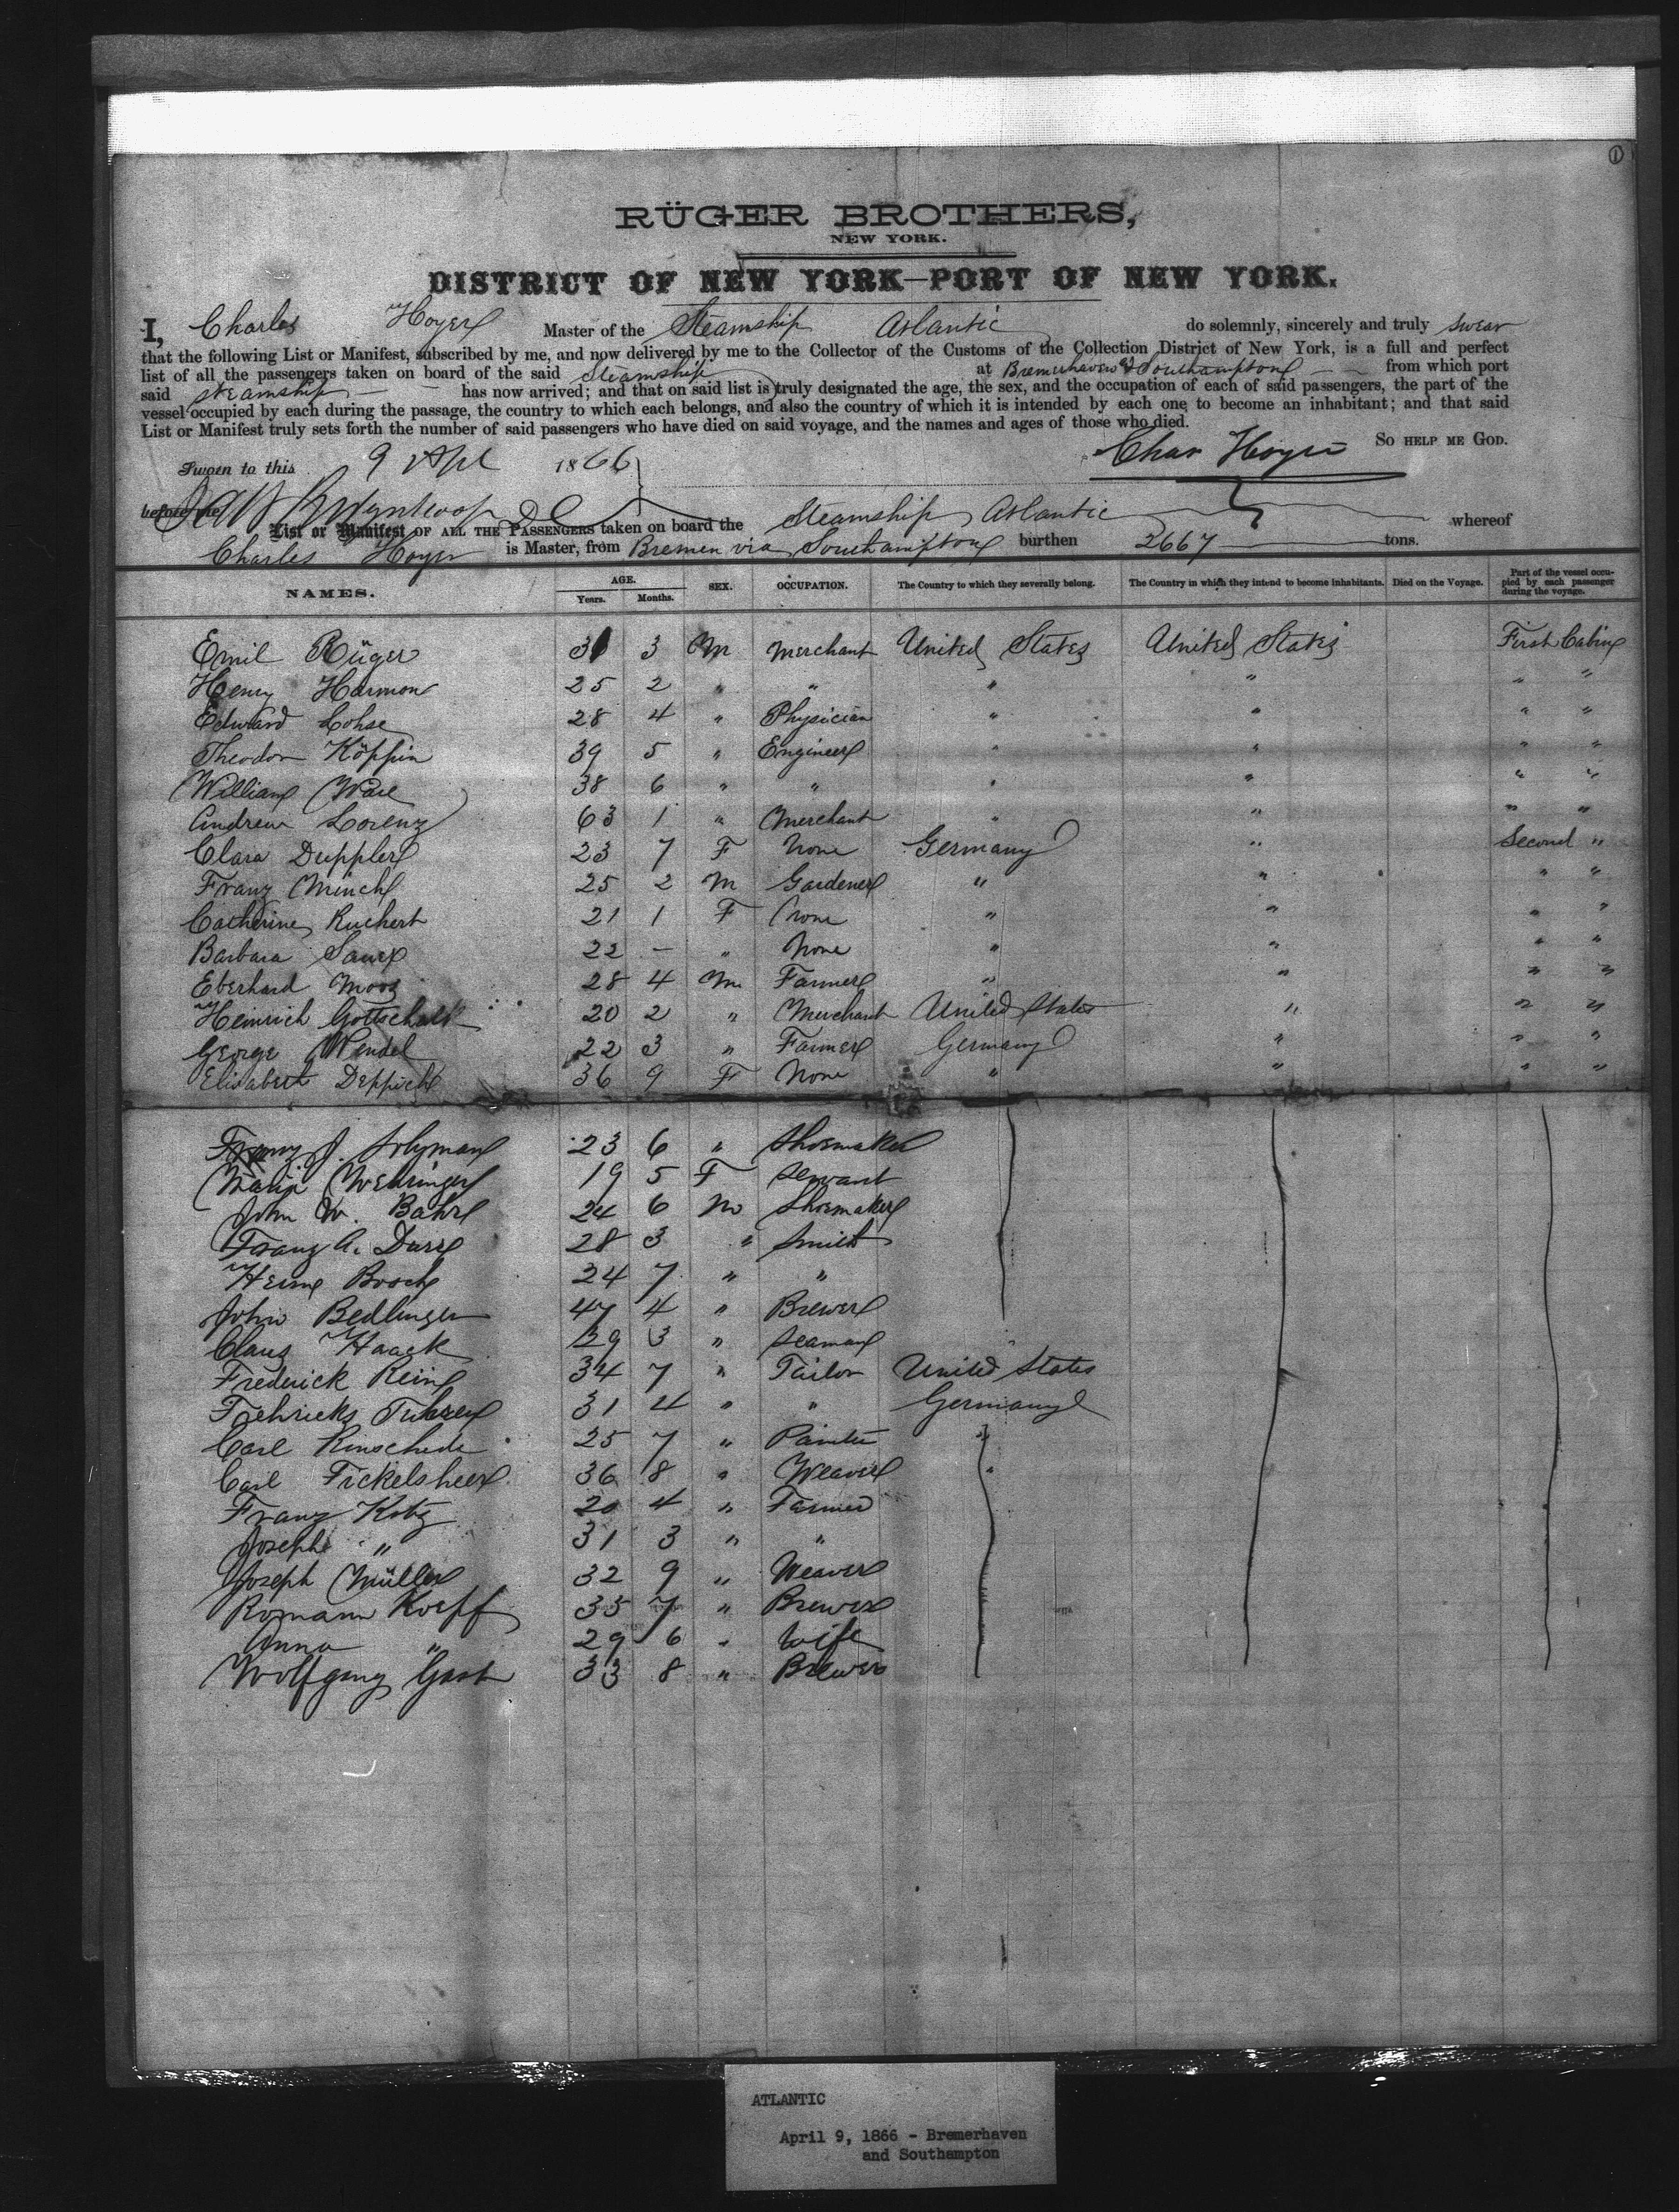 ①
RÜGER BROTHERS,
NEW YORK.
DISTRICT OF NEW YORK—PORT OF NEW YORK.
I, Charles Hoyer Master of the Steamship Atlantic do solemnly, sincerely and truly swear
that the following List or Manifest, subscribed by me, and now delivered by me to the Collector of the Customs of the Collection District of New York, is a full and perfect
list of all the passengers taken on board of the said Steamship at Bremerhaven & Southampton from which port
said steamship has now arrived; and that on said list is truly designated the age, the sex, and the occupation of each of said passengers, the part of the
vessel occupied by each during the passage, the country to which each belongs, and also the country of which it is intended by each one to become an inhabitant; and that said
List or Manifest truly sets forth the number of said passengers who have died on said voyage, and the names and ages of those who died.
So HELP ME GOD.
Chas Hoyer
Sworn to this 9 Apl 1866
before me
List or Manifest OF ALL THE PASSENGERS taken on board the Steamship Atlantic whereof
Charles Hoyer is Master, from Bremen via Southampton burthen 2667 tons.
NAMES. AGE. Years. Months. SEX. OCCUPATION. The Country to which they severally belong. The Country in which they intend to become inhabitants. Died on the Voyage. Part of the vessel occupied by each passenger during the voyage.
Emil Rüger 31 3 M Merchant United States United States First Cabin
Henry Harmon 25 2 " " " " " "
Edward Lohse 28 4 " Physician " " " "
Theodor Köppin 39 5 " Engineer " " " "
William Ware 38 6 " " " " " "
Andrew Lorenz 63 1 " Merchant " " " "
Clara Duppler 23 7 F None Germany " Second "
Franz Minch 25 2 M Gardener " " " "
Catherine Ruchert 21 1 F None " " " "
Barbara Sauer 22 — " None " " " "
Eberhard Moos 28 4 M Farmer " " " "
Heinrich Gottschalk 20 2 " Merchant United States " " "
George Wendel 22 3 " Farmer Germany " " "
Elisabeth Deppich 36 9 F None " " " "
Franz J. 23 6 " Shoemaker
Maria Wehringer 19 5 F Servant
John W. Bahr 24 6 M Shoemaker
Franz A. Durr 28 3 " Smith
Bosch 24 7 " "
John Bedlinger 47 4 " Brewer
Claus Haack 29 3 " Seaman "
Frederick Rein 34 7 " Tailor United States
31 4 " " Germany
Carl Rinschede 25 7 " Painter "
Carl Fickelsheer 36 8 " Weaver "
Franz Kotz 20 4 " Farmer
Joseph " 31 3 " "
Joseph Müller 32 9 " Weaver
Romann Koepff 35 7 " Brewer
Anna " 29 6 " Wife
Wolfgang Gast 33 8 " Brewer
ATLANTIC
April 9, 1866 - Bremerhaven
and Southampton